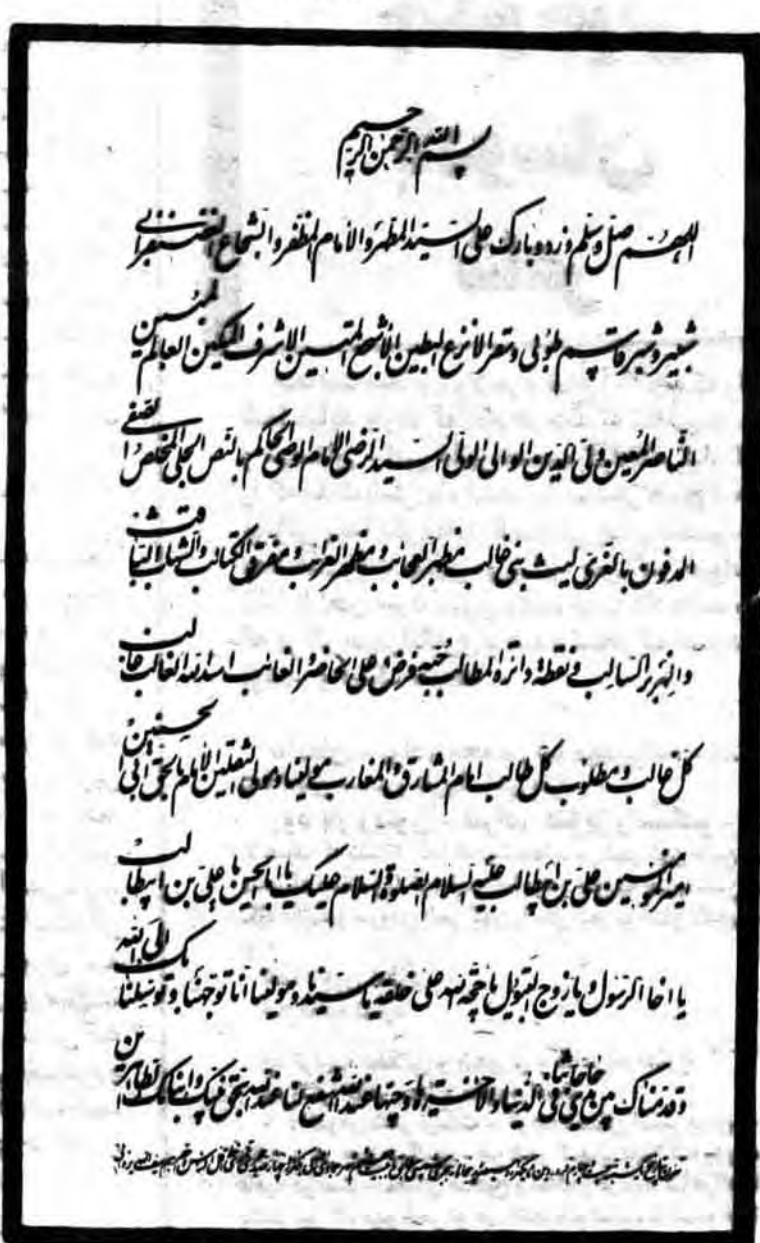 بسم الله الرحمن الرحيم
اللهم صل وسلم وزد وبارك على السيد المطهر والامام المظفر والشجاع الغضنفر ابى
شبير وشبر قاسم طوبى وسقر الانزع البطين الاشجع المتين الاشرف المكين العالم المبين
الناصر المعين ولى الدين الوالى الولى السيد الرضى الامام الوصى الحاكم بالنص الجلى المخلص الصفى
المدفون بالغرى ليث بنى غالب مظهر العجائب ومظهر الغرائب ومفرق الكتائب والشهاب الثاقب
والهزبر السالب ونقطة دائرة المطالب حبه فرض على الحاضر والغائب اسد الله الغالب غالب
كل غالب ومطلوب كل طالب امام المشارق والمغارب مولينا ومولى الثقلين الامام بالحق ابى الحسنين
اميرالمؤمنين على بن ابيطالب عليه السلام الصلوة والسلام عليك يا اباالحسن يا على بن ابيطالب
يا اخا الرسول ويا زوج البتول يا حجة الله على خلقه يا سيدنا ومولينا انا توجهنا وتوسلنا بك الى الله
وقدمناك بين يدى حاجاتنا فى الدنيا والاخرة يا وجيها عند الله اشفع لنا عند الله بحقك وابنائك الطاهرين